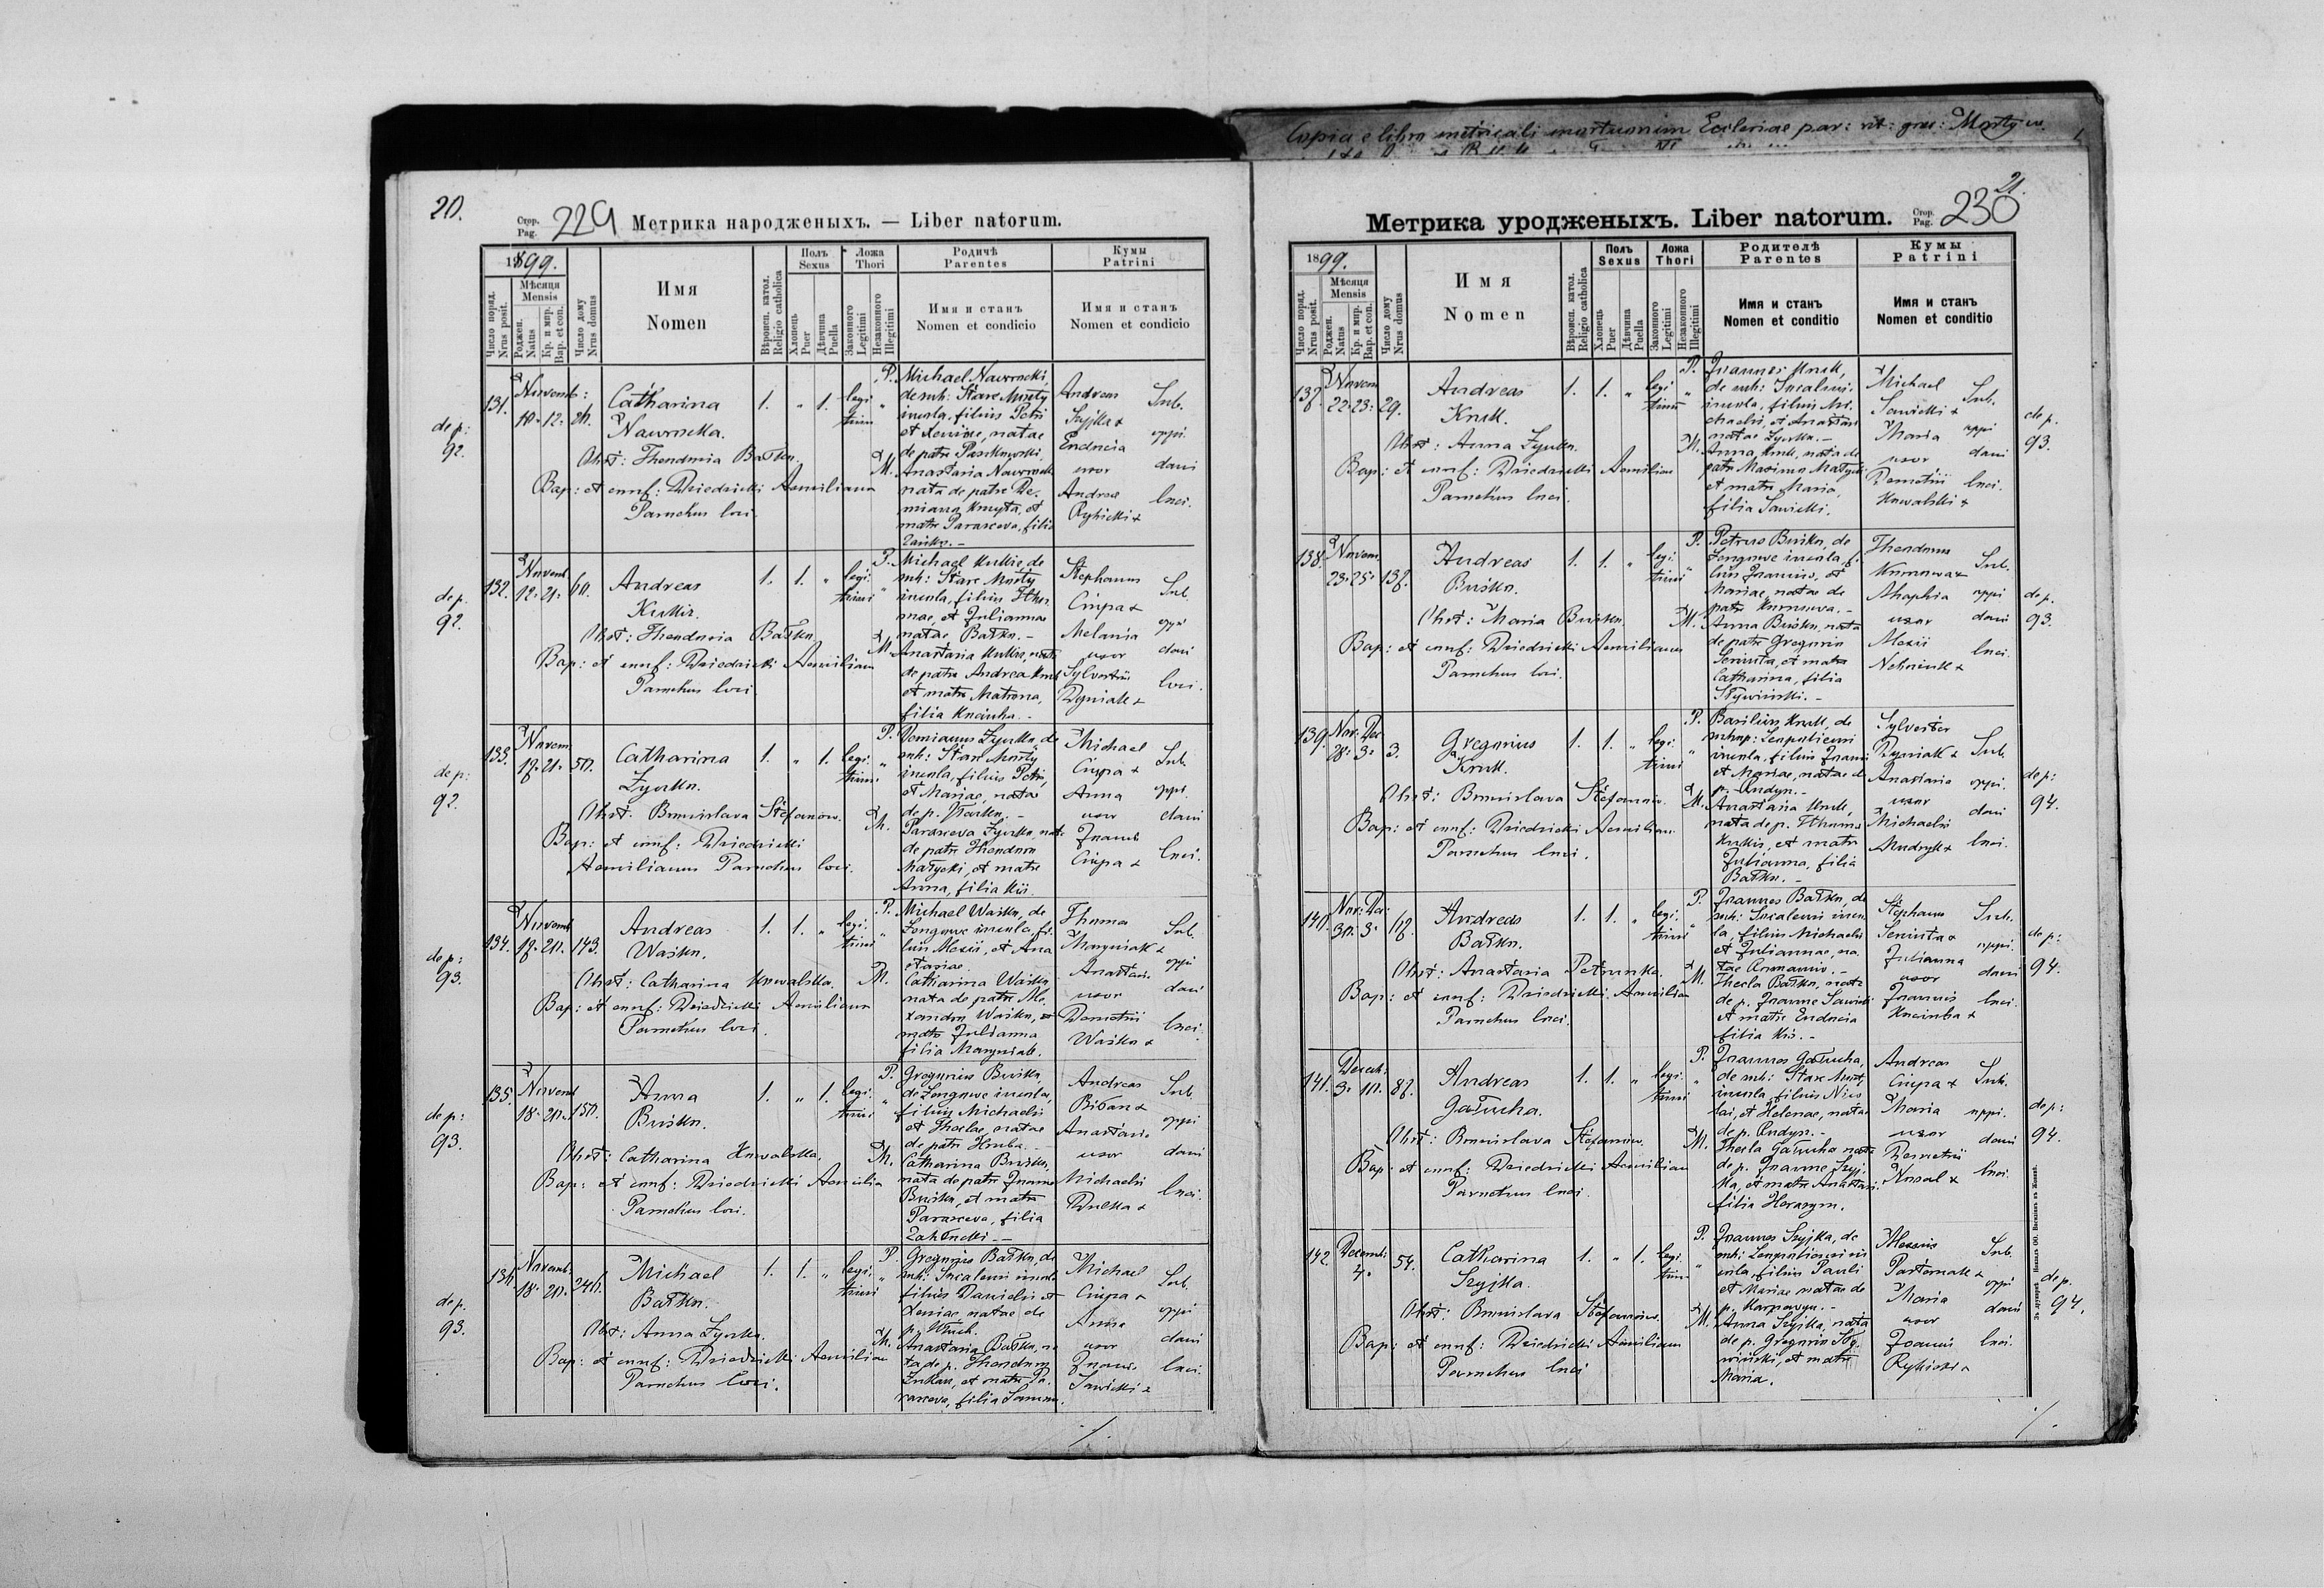 Copia e libro metricali mortuorum Ecclesiae par: rit: graec: Mosty
20.
Стор.
Pag.
229 Метрика народженыхъ. — Liber natorum.
1899.
Число поряд.
Nrus posit.
Мѣсяця
Mensis
Рожден.
Natus
Кр. и мир.
Bap. et con.
Число дому
Nrus domus
Имя
Nomen
Вѣроисп. катол.
Religio catholica
Полъ
Sexus
Хлопець
Puer
Дѣвчина
Puella
Ложа
Thori
Законного
Legitimi
Незаконного
Illegitimi
Родичѣ
Parentes
Имя и станъ
Nomen et condicio
Кумы
Patrini
Имя и станъ
Nomen et condicio
de p:
92.
131.
Novemb:
10. 12.
Catharina
Nawrocka.
1. " 1. legi
timi "
Obst: Theodosia Batko.
Bap: et conf: Dziedzicki Aemilianus
Parochus loci
P. Michael Nawrocki,
de sub: Stare Mosty
incola, filius Petri
et Xeniae, natae
de patre Paszkowski.
M. Anastasia Nawrocka
nata de patre De-
miano Kmyta, et
matre Parasceva, filia
Andreas
Szyjka &
Eudocia
uxor
Andreae
Rybicki &
Sub.
oppi
dani
loci.
de p.
92.
132.
Novemb.
12. 21. 60.
Andreas
Kukis.
1. 1. " legi.
timi "
Obst: Theodosia Batko
Bap: et conf: Dziedzicki Aemilianus
Parochus loci
P. Michael Kukis, de
sub: Stare Mosty
incola, filius Tho-
mae, et Juliannae
natae Batko. -
M. Anastasia Kukis, nata
de patre Andrea Kruk
et matre Matrona,
filia Kociuba. -
Stephanus
Ciupa &
Melania
uxor
Sylvestri
Dyniak &
Sub.
oppi
dani
loci.
de p:
92.
133.
Novem.
17. 21. 50.
Catharina
Zyrko.
1. " 1. legi.
timi "
Obst. Bronislava Stefanow.
Bap: et conf: Dziedzicki
Aemilianus Parochus loci.
P. Demianus Zyrko, de
sub: Stare Mosty
incola, filius Petri,
et Mariae, natae
M. Parasceva Zyrko, nata
de patre Theodoro
Matycki, et matre
Anna, filia Kis.
Michael
Ciupa &
Anna
uxor
Joannis
Ciupa &
Sub.
oppi.
dani
loci.
de p:
93.
134.
Novemb
17. 20. 143.
Andreas
Waśko.
1. 1. " legi.
timi "
Obst: Catharina Kowalska.
Bap: et conf: Dziedzicki Aemilianus
Parochus loci.
P. Michael Waśko, de
Zongowe incola, fi-
lius Alexii, et Ana
stasiae.
M. Catharina Waśko
nata de patre Ale-
xandro Waśko, et
matre Julianna
filia Maryniak.
Thoma
Maryniak &
Anastasia
uxor
Demetrii
Waśko &
Sub.
oppi
dani
loci.
de p:
93.
135.
Novemb
18. 20. 150.
Anna
Buśko.
1. " 1. legi.
timi "
Obst: Catharina Kowalska.
Bap: et conf: Dziedzicki Aemilia
Parochus loci.
P. Gregorius Buśko,
de Zongowe incola,
filius Michaelis
et Theclae, natae
de patre Hruba. -
M. Catharina Buśko,
nata de patre Joanne
Buśko, et matre
Parasceva, filia
Andreas
Biban &
Anastasia
uxor
Michaelis
Dulka &
Sub.
oppi
dani
loci.
de p.
93.
136.
Novemb.
18. 20. 240.
Michael
Batko.
1. 1. " legi.
timi "
Obst: Anna Zyrko.
Bap: et conf: Dziedzicki Aemilian
Parochus loci.
P. Gregorius Batko, de
sub: incola
filius Danielis et
Xeniae natae de
M. Anastasia Batko, na
ta de p. Theodoro
et matre Pa-
rasceva, filia
Michael
Ciupa &
Anna
uxor
Joannis
Sawicki &
Sub.
oppi
dani
loci.
Метрика уродженыхъ. Liber natorum.
Стор.
Pag.
230
21.
1899.
Число поряд.
Nrus posit.
Мѣсяця
Mensis
Рожден.
Natus
Кр. и мир.
Bap. et con.
Число дому
Nrus domus
Имя
Nomen
Вѣроисп. катол.
Religio catholica
Полъ
Sexus
Хлопець
Puer
Дѣвчина
Puella
Ложа
Thori
Законного
Legitimi
Незаконного
Illegitimi
Родителѣ
Parentes
Имя и станъ
Nomen et conditio
Кумы
Patrini
Имя и станъ
Nomen et conditio
137.
Novem
22. 23. 29.
Andreas
Kruk.
1. 1. " legi
timi "
Obst: Anna Zyrko.
Bap: et conf: Dziedzicki Aemilian
Parochus loci.
P. Joannes Kruk,
de sub:
incola, filius Mi-
chaelis, et Anastasiae
natae Zyrko. -
M. Anna Kruk, nata de
patre Maximo Matycki
et matre Maria,
filia Sawicki.
Michael
Sawicki &
Maria
uxor
Demetrii
Kowalski &
Sub.
oppi
dani
loci.
de p.
93.
138.
Novem
23. 25. 137.
Andreas
Buśko.
1. 1. " legi.
timi "
Obst: Maria Buśko.
Bap: et conf: Dziedzicki Aemilianus
Parochus loci.
P. Petrus Buśko, de
Zongowe incola, fi-
lius Joannis, et
Mariae, natae de
M. Anna Buśko, nata
de patre Gregorio
Seniuta, et matre
Catharina, filia
Theodorus
uxor
Alexii
Sub.
oppi
dani
loci.
de p.
93.
139.
Nov. Dec
28. 3. 3.
Gregorius
Kruk.
1. 1. " legi.
timi "
Obst: Bronislava Stefanow.
Bap: et conf: Dziedzicki Aemilian.
Parochus loci.
P. Basilius Kruk, de
incola, filius Joannis
et Mariae, natae de
p. Andyn. -
M. Anastasia Kruk,
nata de p. Thoma
Kukis, et matre
Julianna, filia
Batko. -
Sylvester
Dyniak &
Anastasia
uxor
Michaelis
Mudryk &
Sub.
oppi.
dani
loci.
de p:
94.
140.
Nov. Dec.
30. 3. 67.
Andreas
Batko.
1. 1. " legi.
timi "
Obst: Anastasia Petrunka.
Bap: et conf: Dziedzicki Aemilian
Parochus loci.
P. Joannes Batko, de
sub: inco
la, filius Michaelis
et Juliannae, na-
tae
M. Thecla Batko, nata
de p. Joanne Sawicki
et matre Eudocia
filia Kis. -
Stephanus
Seniuta &
Julianna
uxor
Joannis
Kociuba &
Sub.
oppi.
dani
loci.
de p:
94.
141.
Decemb.
3. 10. 87.
Andreas
Gatucha.
1. 1. " legi.
timi "
Obst: Bronislava Stefanow.
Bap: et conf: Dziedzicki Aemilian
Parochus loci.
P. Joannes Gatucha,
de sub: Stare Mosty,
incola, filius Nico
lai, et Helenae, natae
de p. Andyn. -
M. Thecla Gatucha nata
de p. Joanne Szyj-
ka, et matre Anastasi.
filia Harasym.
Andreas
Ciupa &
Maria
uxor
Demetrii
Kowal &
Sub.
oppi.
dani
loci.
de p:
94.
142.
Decemb.
7. 54.
Catharina
Szyjka.
1. " 1. legi.
timi "
Obst: Bronislava Stefanow.
Bap: et conf: Dziedzicki Aemilian
Parochus loci
P. Joannes Szyjka, de
filius Pauli
et Mariae natae de
M. Anna Szyjka, nata
de p. Gregorio
et matre
Maria.
Alexius
Pasternak &
Maria
uxor
Joannis
Rybicki &
Sub.
oppi
dani
loci.
de p.
94.